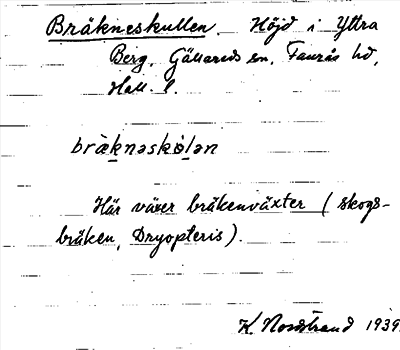 Bräkneskullen. Höjd i Yttra
Berg, Gällareds sn, Faurås hd,
Hall. l.
bràknaskö̀lan
Här växer bräkenväxter (skogs-
bräken, Dryopteris).
K. Nordstrand 1939.